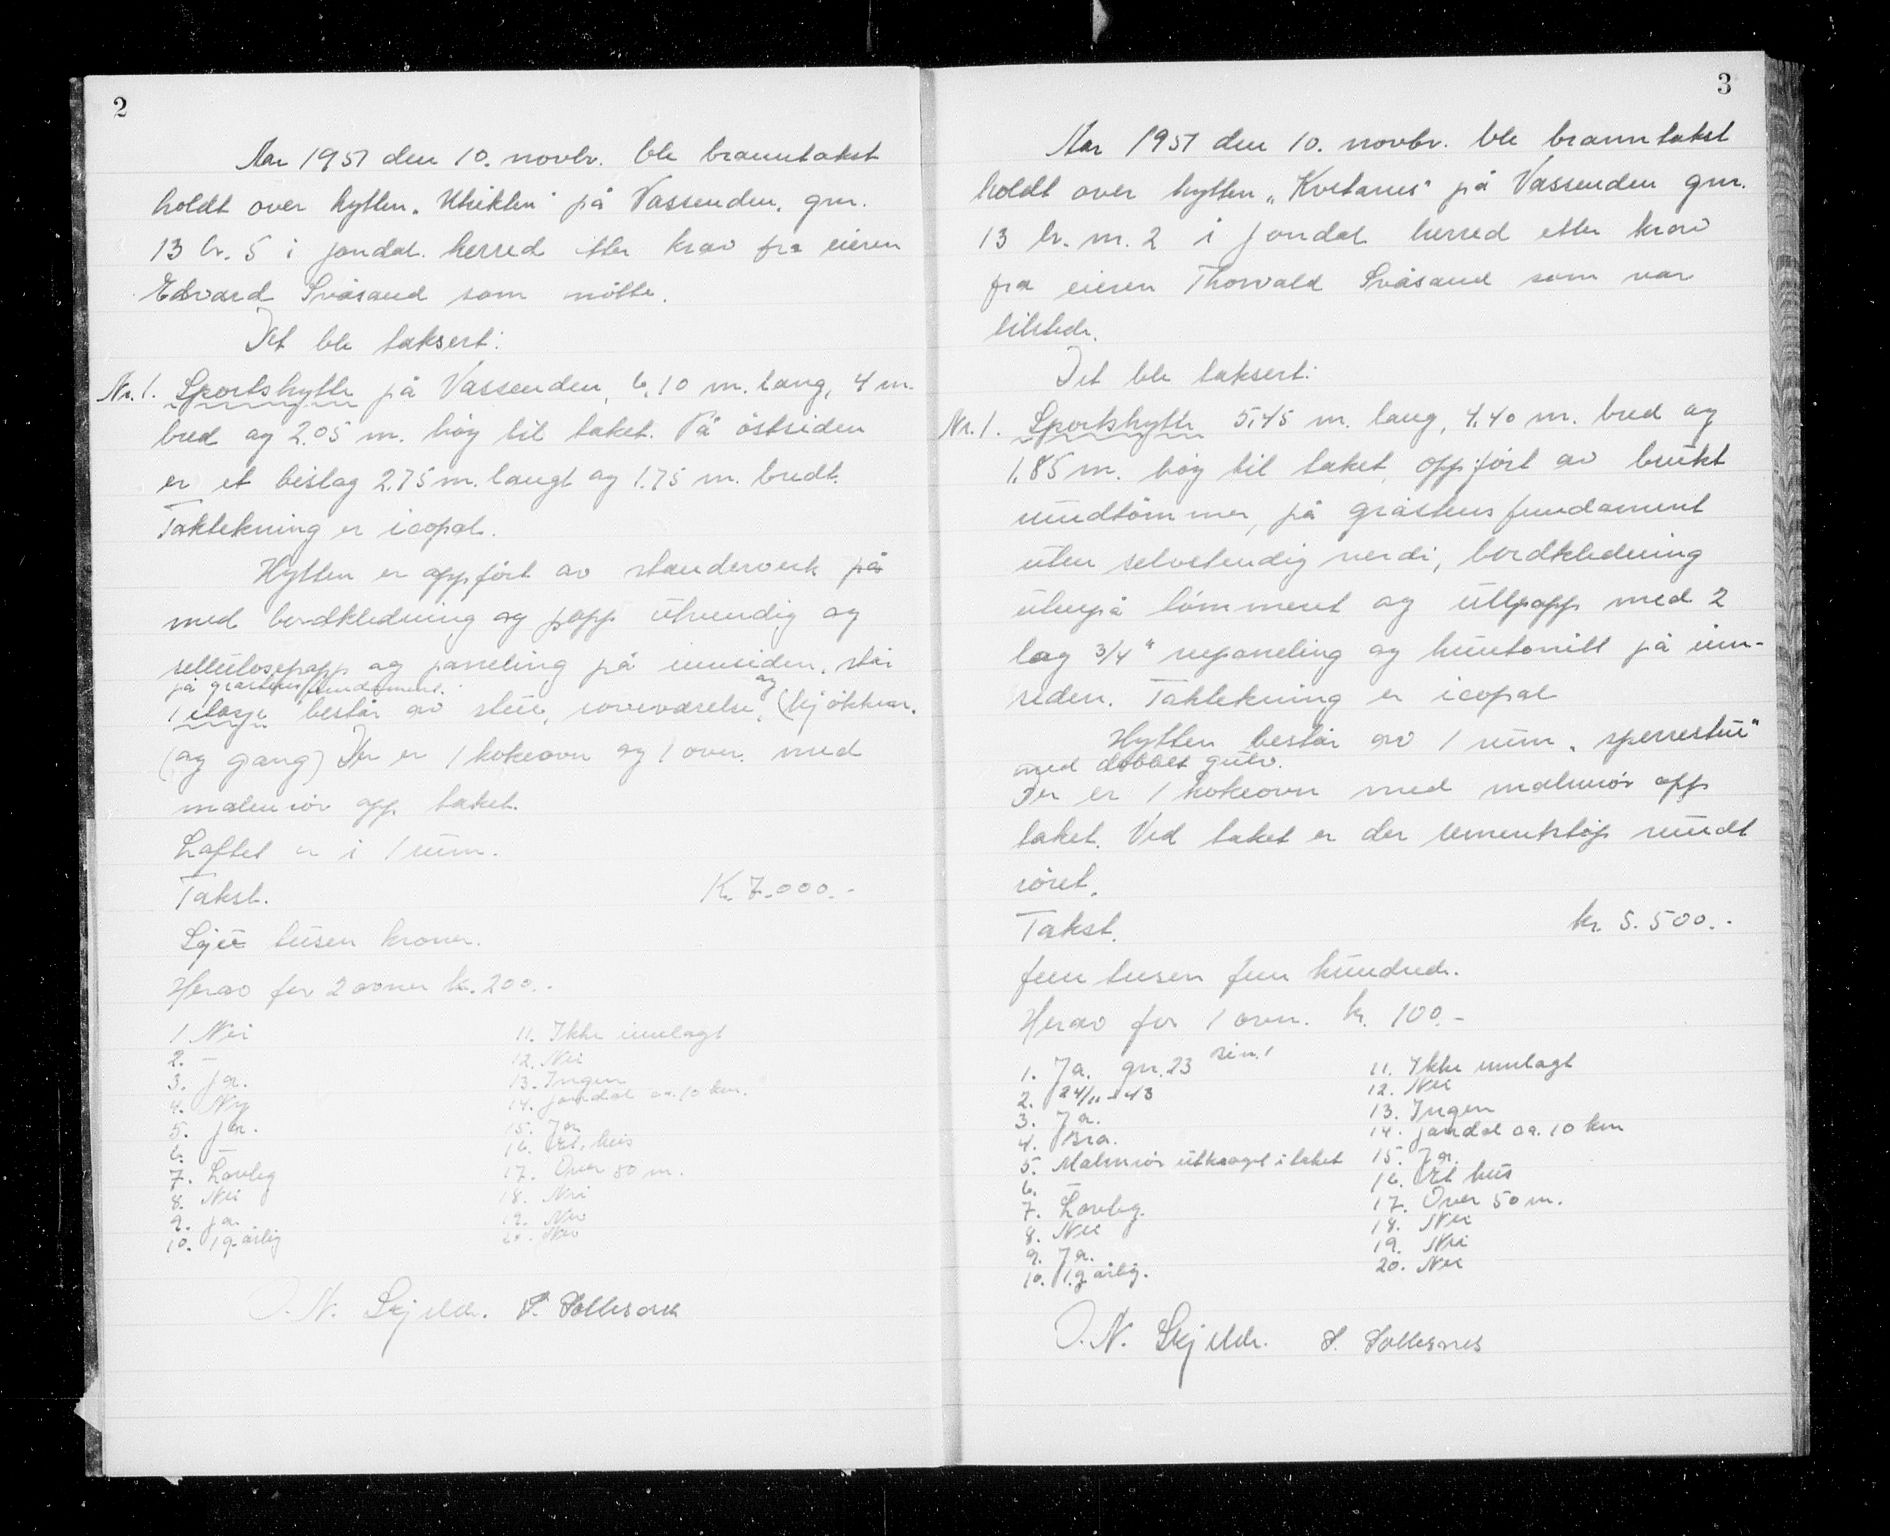 2
Aar 1951 den 10. novbr. ble branntakst
holdt over hytten „Utsikten" på Vassenden, gnr.
13 br. 5 i Jondal herred etter krav fra eieren
Edvard Svåsand som møtte.
Det ble taksert:
Nr. 1. Sportshytte på Vassenden, 6,10 m. lang, 4 m.
bred og 2.05 m. høy til taket. På østsiden
er et bislag 2.75 m. langt og 1.75 m. bredt.
Taktekning er icopal.
Hytten er oppført av standerverk på
med bordkledning og papp utvendig og
sellulosepapp og paneling på innsiden, står
på gråstens fundament.
1 etasje består av stue, soveværelse, og (kjøkken.
og gang) Der er 1 kokeovn og 1 ovn. med
malmrør opp taket.
Loftet er i 1 rum.
Takst. Kr. 7.000.-
Sju tusen kroner.
Herav for 2 ovner kr. 200.-
1 Nei
2. –
3. Ja.
4. Ny
5. Ja.
6. –
7. Lovleg
8. Nei
9. Ja
10. 1 g. årlig
11. Ikke innlagt
12. Nei
13. Ingen
14. Jondal ca. 10 km.
15. Ja
16. Et hus
17. Over 50 m.
18. Nei
19. Nei
20. Nei
O. N. Skjelde. S. Sollesnes
3
Aar 1951 den 10. novbr. ble branntakst
holdt over hytten „Kvitanes" på Vassenden gnr.
13 br. nr. 2 i Jondal herred etter krav
fra eieren Thorvald Svåsand som var
tilstede.
Det ble taksert:
Nr. 1. Sportshytte 5,45 m. lang, 4,40 m. bred og
1.85 m. høy til taket, oppført av brukt
rundtømmer, på gråstens fundament
uten selvstendig verdi, bordkledning
utenpå tømmeret og ullpapp med 2
lag 3/4" repaneling og huntonitt på inn-
siden. Taktekning er icopal
Hytten består av 1 rum „sperrestue"
med dobbel gulv.
Der er 1 kokeovn med malmrør opp
taket. Ved taket er der sementstøp rundt
røret.
Takst. kr. 5.500.-
fem tusen fem hundrede.
Herav for 1 ovn. kr. 100.-
1. Ja. gnr. 23
2. 24/11-43
3. Ja.
4. Bra.
5. Malmrør utkraget i taket
6. –
7. Lovleg.
8. Nei
9. Ja.
10. 1 g. årlig.
11. Ikke innlagt
12. Nei
13. Ingen
14. Jondal ca. 10 km
15. Ja.
16. Et hus
17. Over 50 m.
18. Nei
19. Nei
20. Nei
O. N. Skjelde. S. Sollesnes